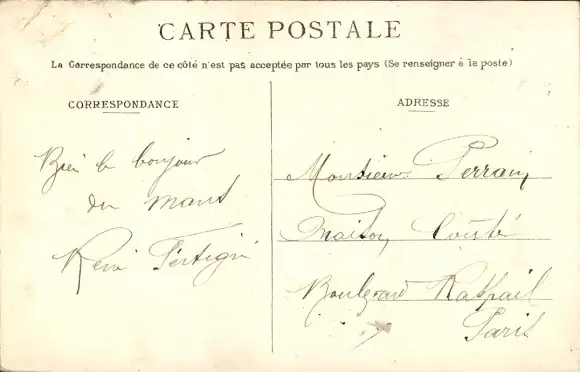 CARTE POSTALE
La Correspondance de ce côté n'est pas acceptée par tous les pays (Se renseigner à la poste)
CORRESPONDANCE
ADRESSE
Bien le bonjour
du mans
René
Monsieur Perrain
Maison Couté
Boulevard Raspail
Paris